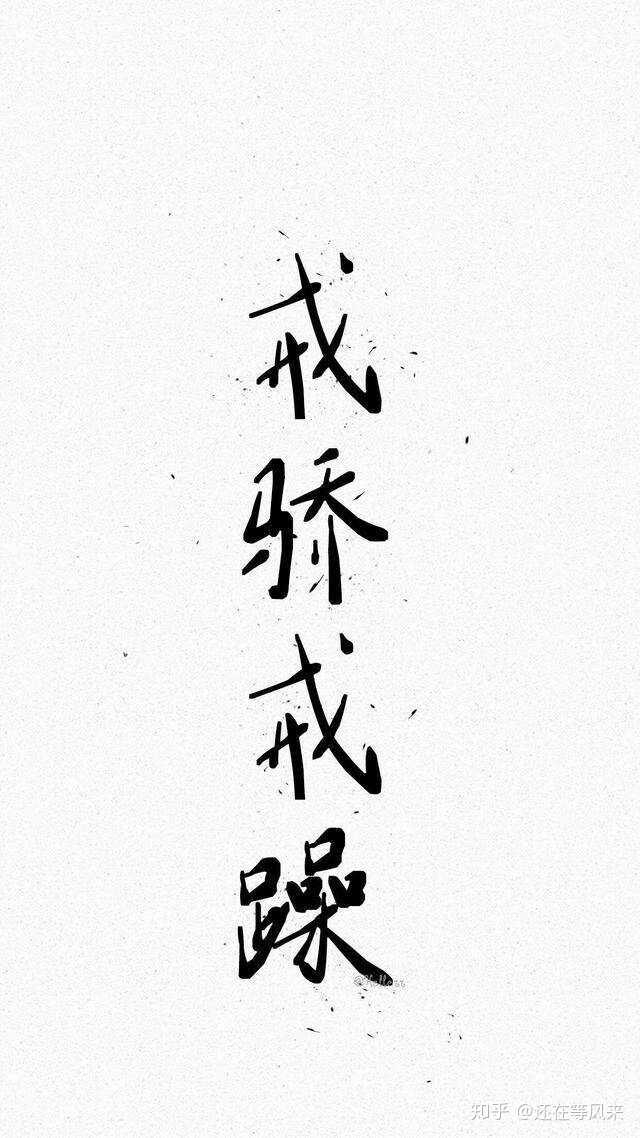 戒
骄
戒
躁
知乎 @还在等风来